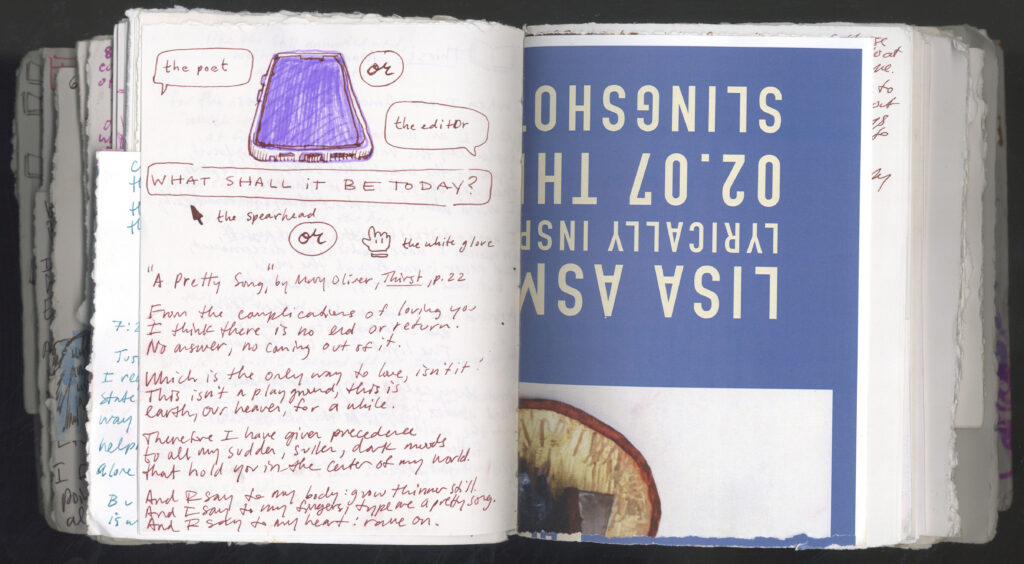 the poet
or
the editor
WHAT SHALL IT BE TODAY?
the spearhead
or
the white glove
"A Pretty Song," by Mary Oliver, Thirst, p.22
From the complications of loving you
I think there is no end or return.
No answer, no coming out of it.
Which is the only way to love, isn't it?
This isn't a playground, this is
earth, our heaven, for a while.
Therefore I have given precedence
to all my sudden, sullen, dark moods
that hold you in the center of my world
And I say to my body: grow thinner still.
And I say to my fingers, type me a pretty song.
And I say to my heart: rave on.
7:2
I re
state
way
help
alone
LISA ASM
LYRICALLY INSP
02.07 TH
SLINGSHO